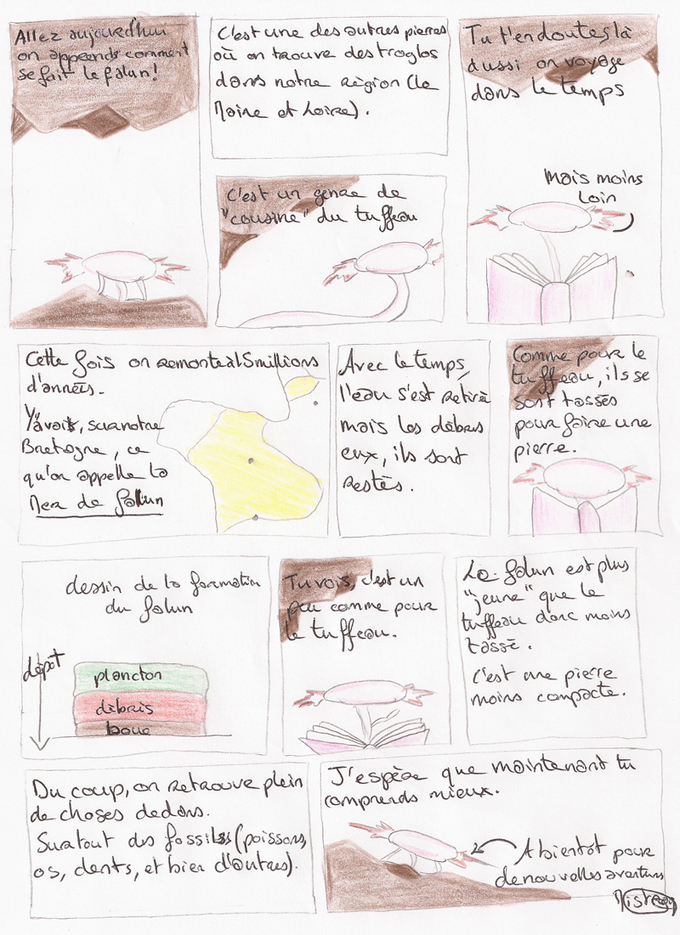 Allez aujourd'hui
on apprends comment
se fait le falun!
C'est une des autres pierres
où on trouve des troglos
dans notre région (le
Maine et Loire).
C'est un genre de
"cousine" du tuffeau
Tu t'en doutes, là
aussi on voyage
dans le temps
Mais moins
loin
Cette fois on remonte à 15 millions
d'années.
Y'avait, sur notre
Bretagne, ce
qu'on appelle la
Mer de falun
Avec le temps,
l'eau s'est retiré
mais les débris
eux, ils sont
restés.
Comme pour le
tuffeau, ils se
sont tassés
pour faire une
pierre.
dessin de la formation
du falun
dépôt
plancton
débris
boue
Tu vois, c'est un
peu comme pour
le tuffeau.
Le falun est plus
"jeune" que le
tuffeau donc moins
tassé.
C'est une pierre
moins compacte.
Du coup, on retrouve plein
de choses dedans.
Surtout des fossiles (poissons,
os, dents, et bien d'autres).
J'espère que maintenant tu
comprends mieux.
A bientôt pour
de nouvelles aventures